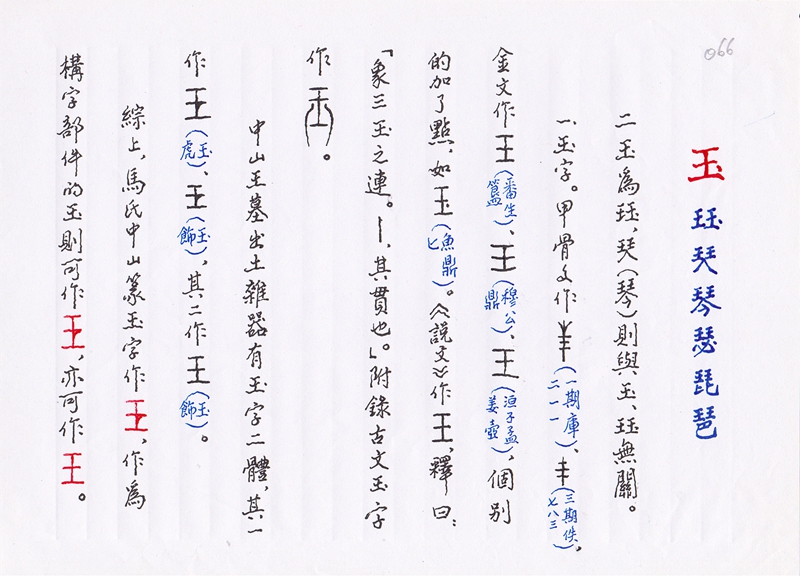 066
玉 珏 珡 琴 瑟 琵 琶
二玉為珏，珡（琴）則與玉、珏無關。
一、玉字。甲骨文作（一期庫二一一）、丰（三期佚七八三），
金文作王（番生簋）、王（穆公鼎）、王（洹子孟姜壺），個別
的加了點，如玉（魚鼎匕）。《說文》作王，釋曰：
「象三玉之連。丨，其貫也。」附錄古文玉字
作。
中山王墓出土雜器有玉字二體，其一
作（玉虎）、（玉飾），其二作王（玉飾）。
綜上，馬氏中山篆玉字作，作為
構字部件的玉則可作，亦可作王。